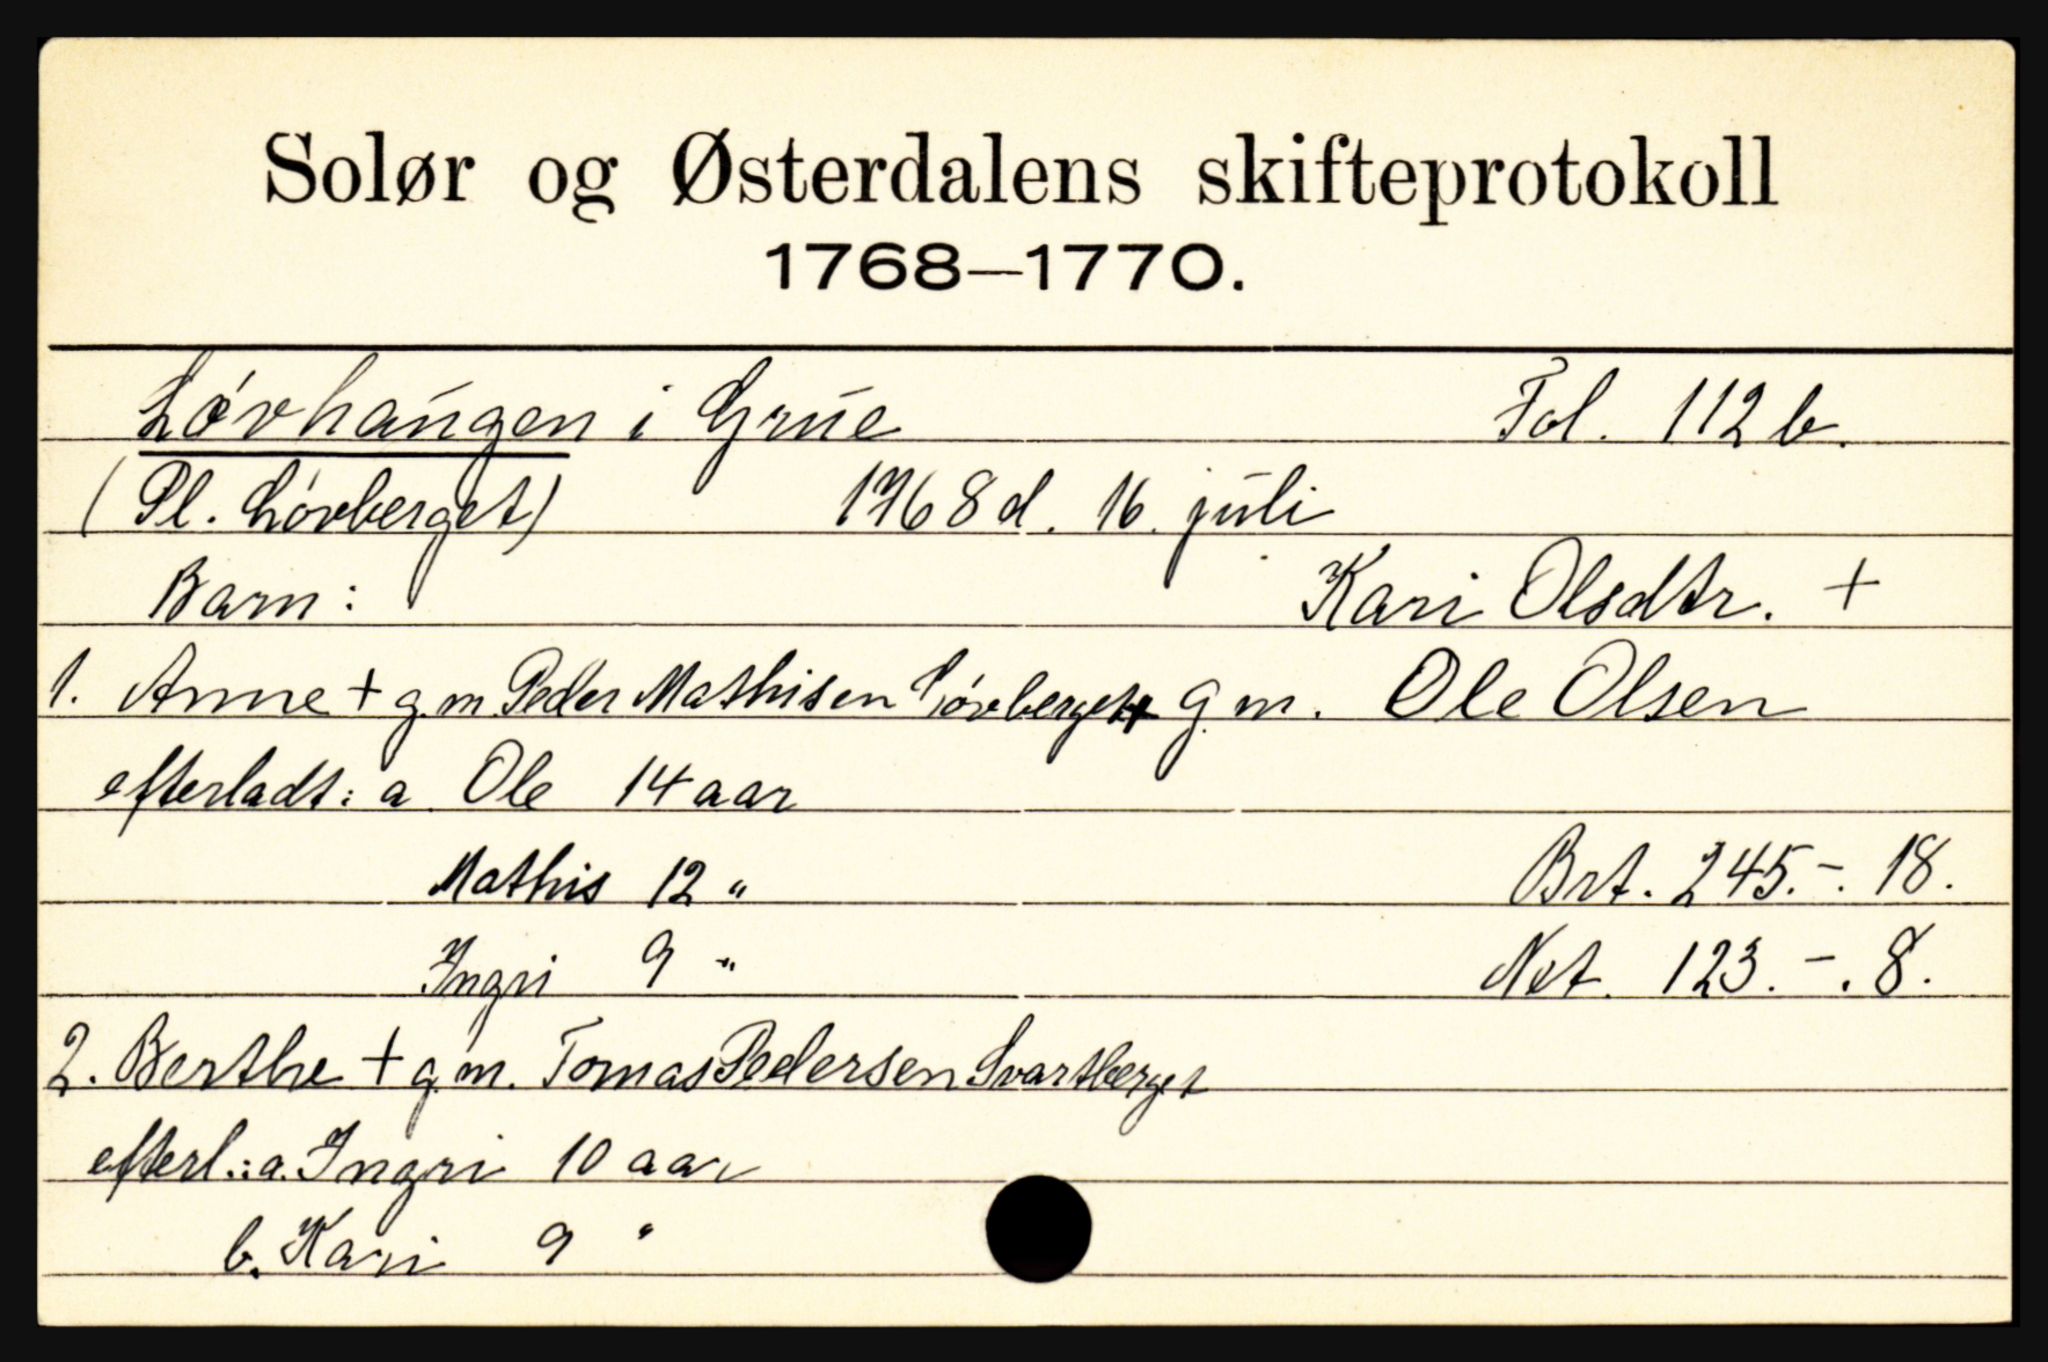 Solør og Østerdalens skifteprotokoll
1768—1770.
Løvhaugen i Grue Fol. 112 b.
(Pl. Løvberget) 1768 d. 16. juli
Barn: Kari Olsdtr. +
1. Anne + g.m. Peder Mathisen Løvberget + g.m. Ole Olsen
efterladt: a. Ole 14 aar
Mathis 12 "
Brt. 245.-. 18.
Ingri 9 "
Net. 123.-. 8.
2. Berthe + g.m. Tomas Pedersen Svartberget
efterl.: a. Ingri 10 aar
b. Kari 9 "